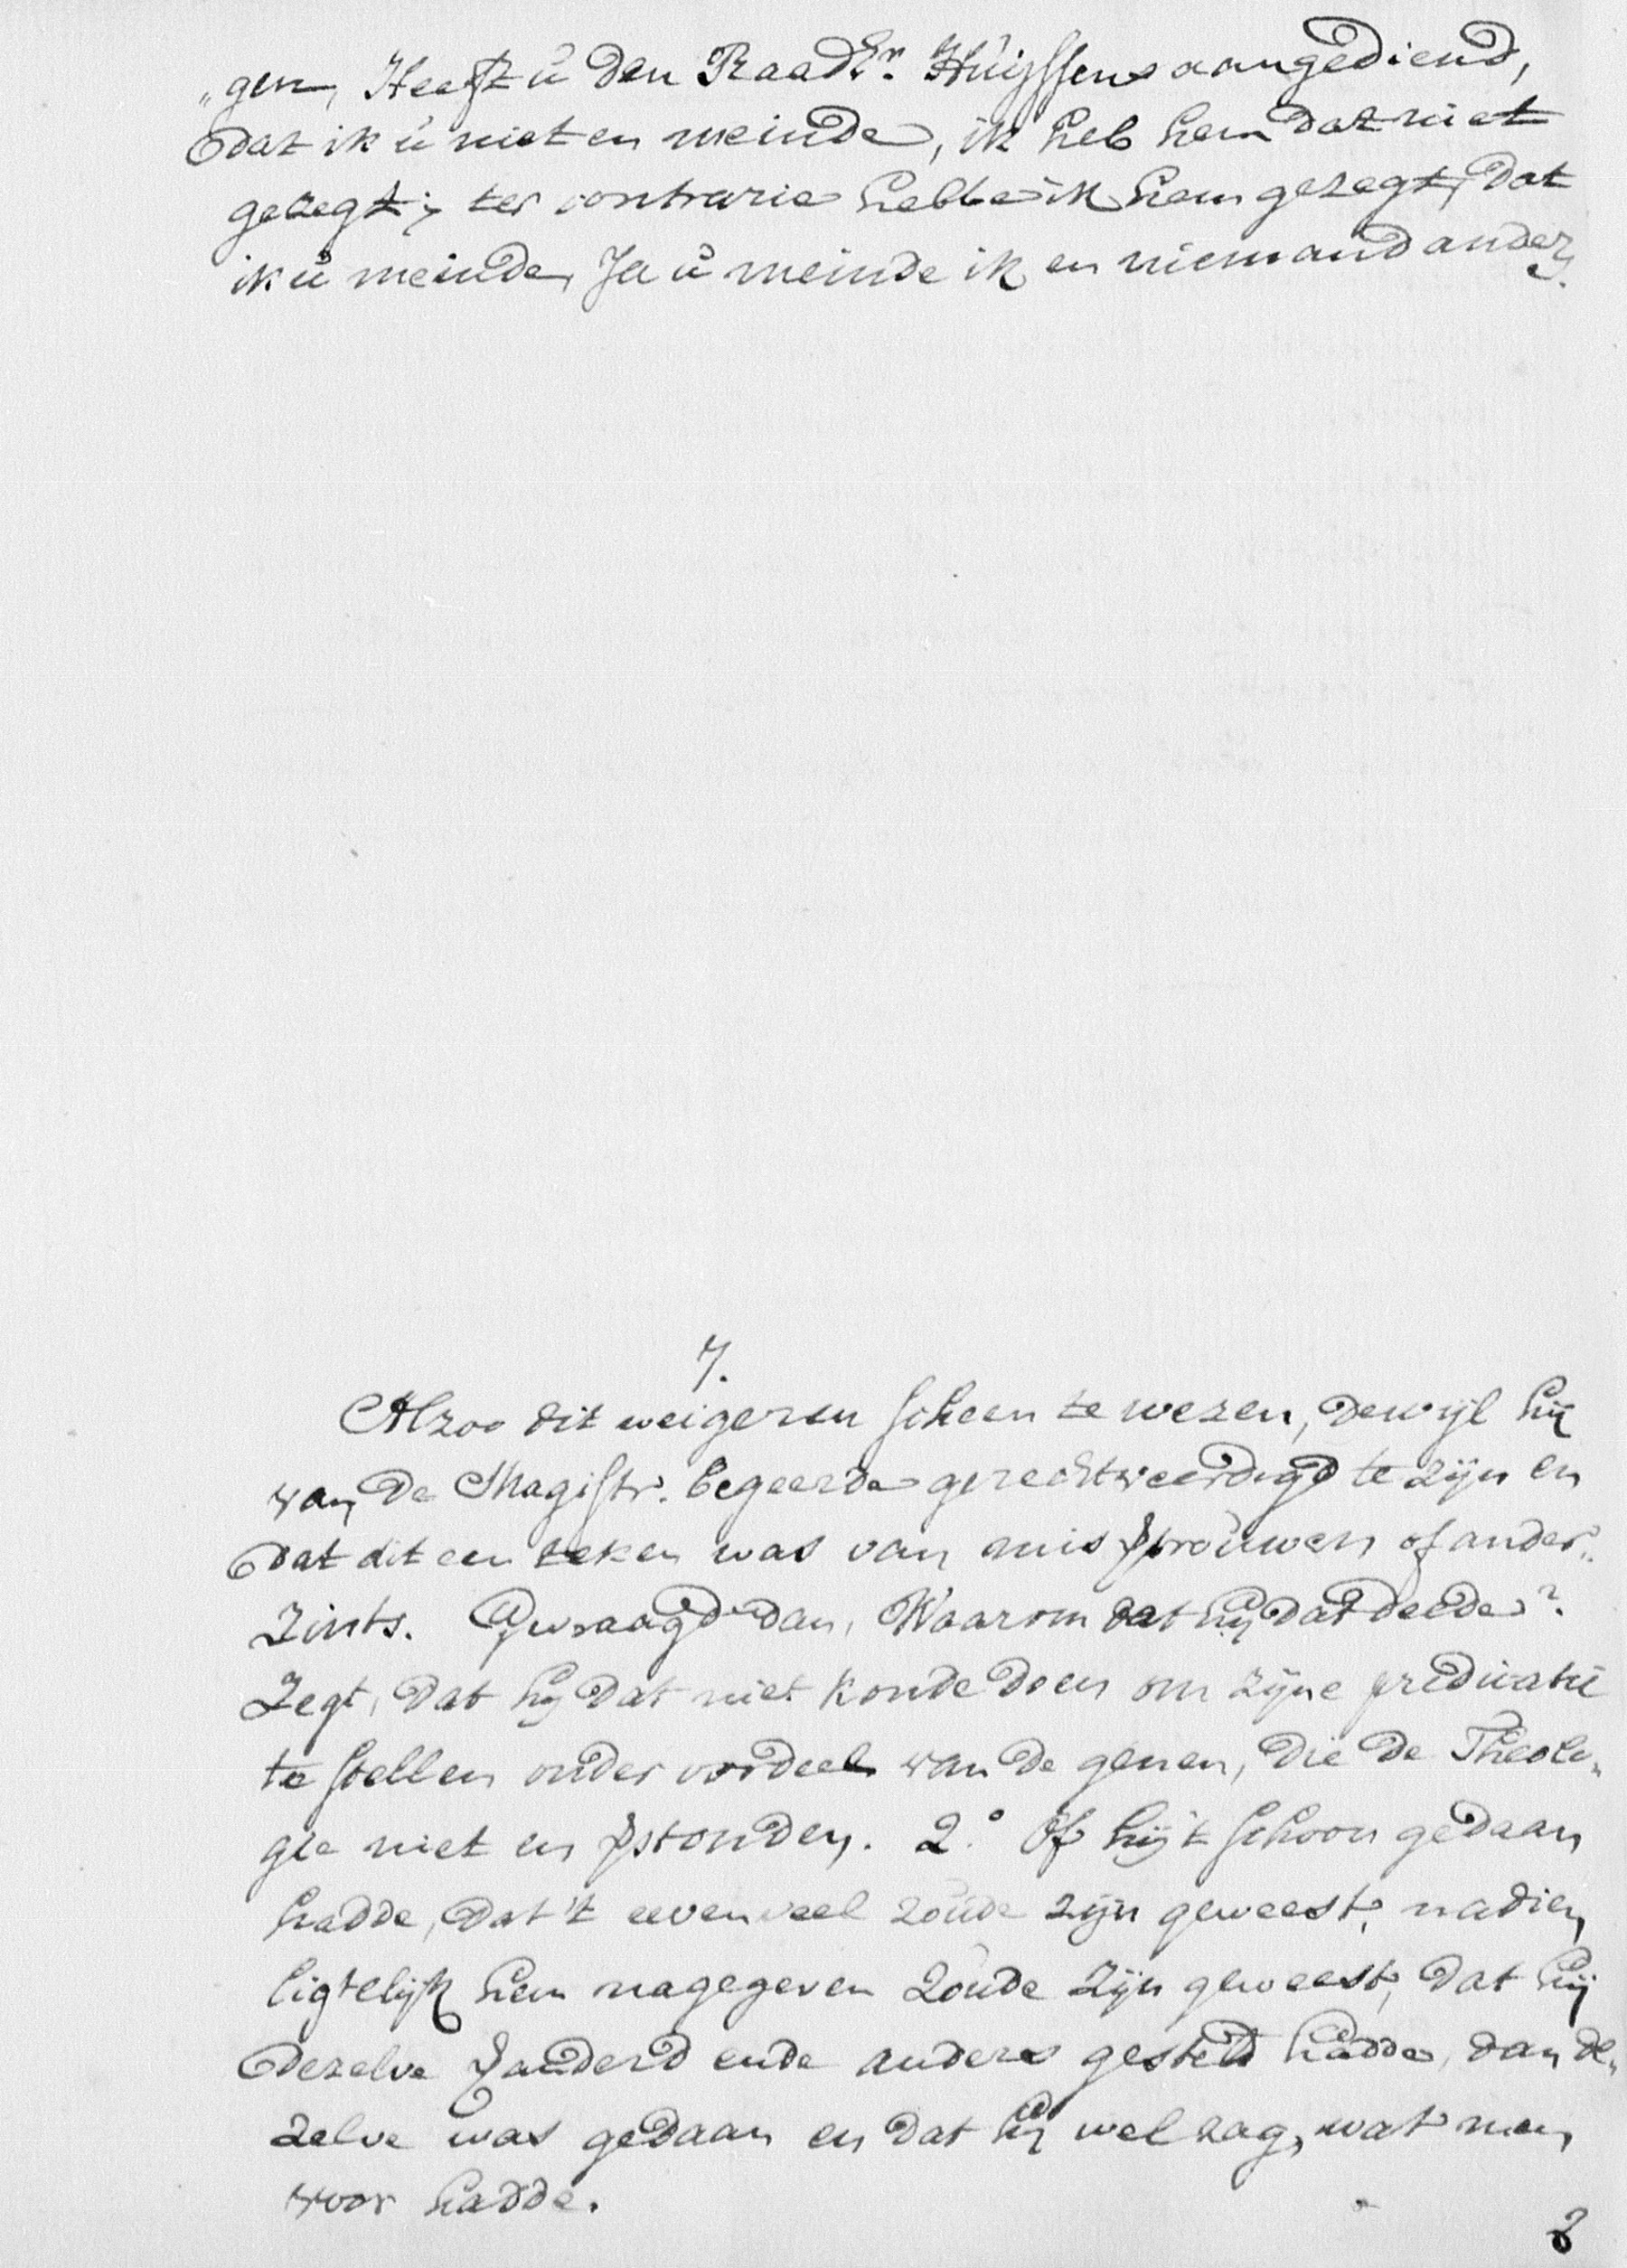 „gen, Heeft ú den Raadhr. Húijssens aangediend,
dat ik ú niet en meinde, ik heb hem dat niet
gezegt; ter contrarie hebbe ik hem gezegt, dat
ik ú meinde, Ja ú meinde ik en niemand anders.
7.
Alzoo dit weigeren scheen te wezen, dewijl hij
van de Magistr. begeerde gerechtveerdigd te zijn en
dat dit een teken was van misvertrouwen of ander„
zints. Gevraagd dan, Waarom dat hij dat deede?
Zegt, dat hij dat niet konde doen om zijne predicatie
te stellen onder oordeel van de genen, die de Theolo„
gie niet en verstonden. 2.° Of hij 't schoon gedaan
hadde, dat 't eevenveel zoúde zijn geweest, nadien
ligtelijk hem nagegeven zoúde zijn geweest, dat hij
dezelve veranderd ende anders gesteld hadde, dan de„
zelve was gedaan en dat hij wel zag, wat men
voor hadde.
8